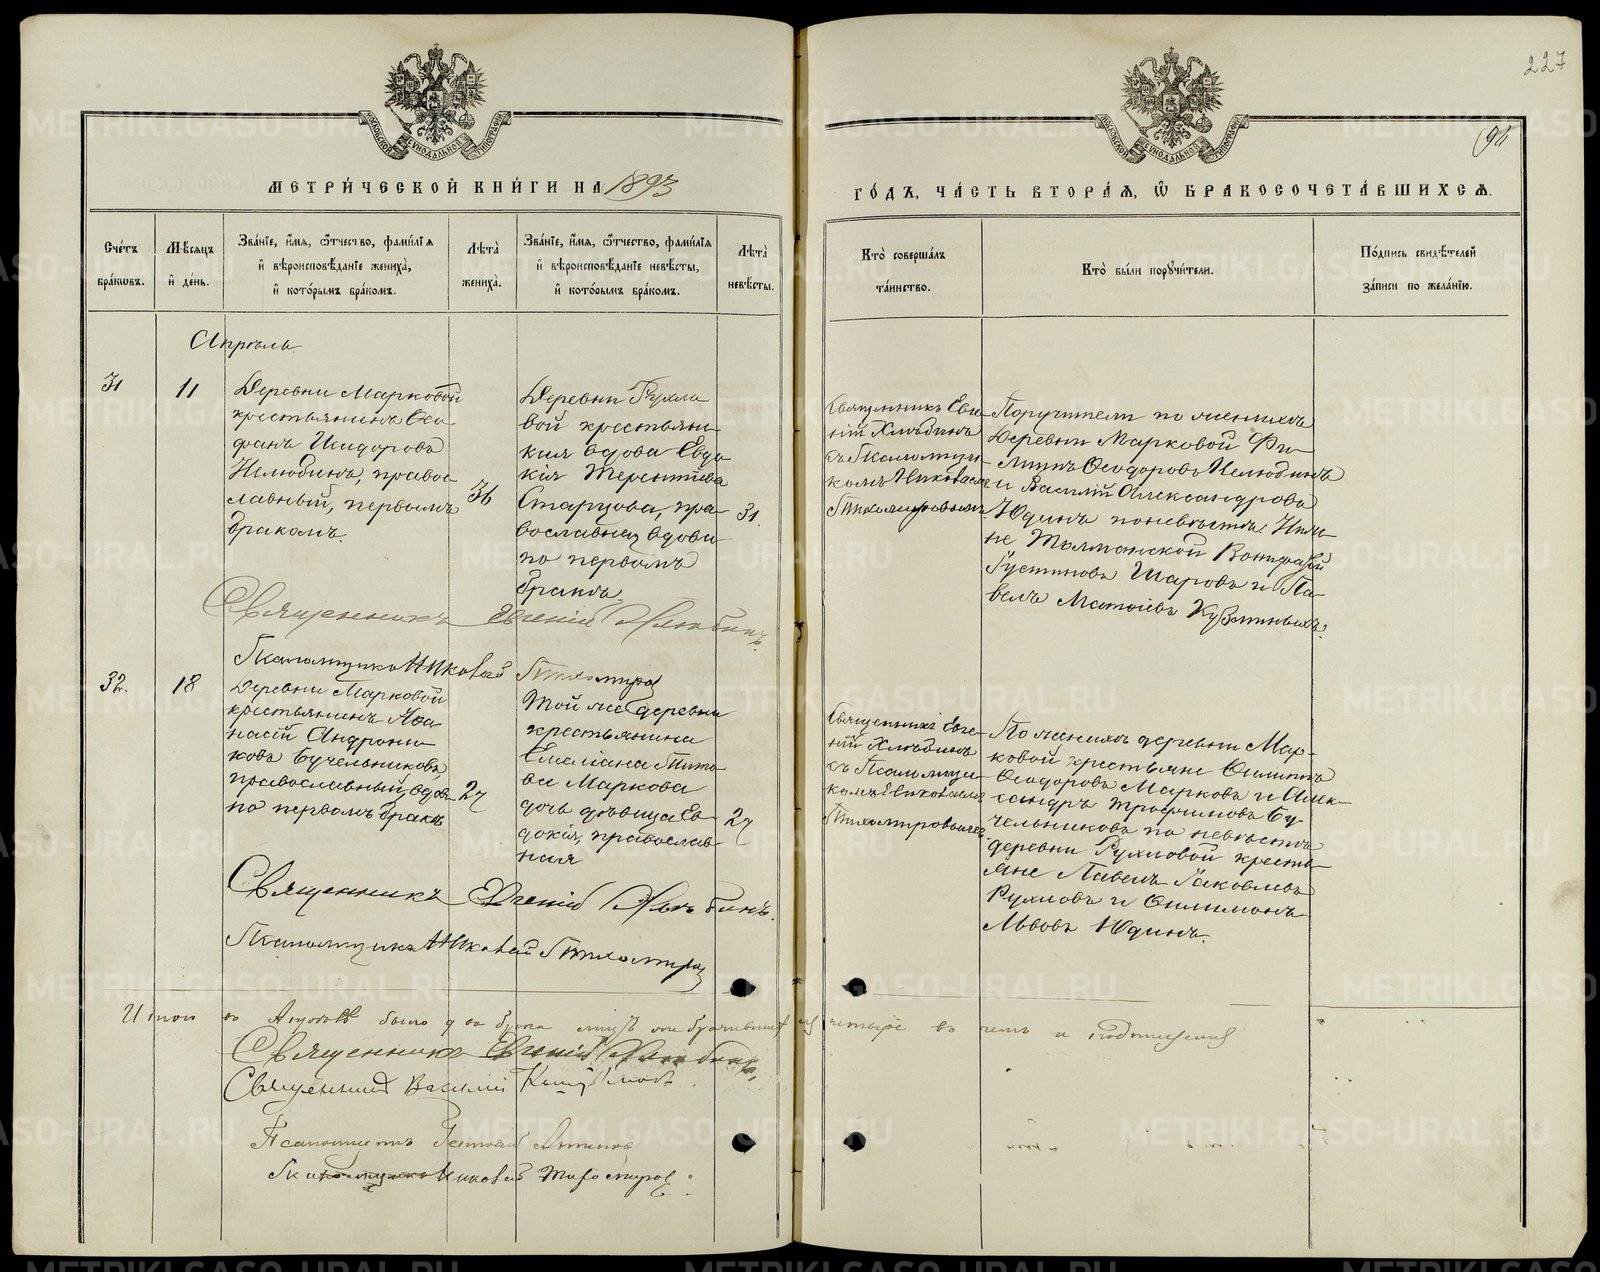 227
94
МЕТРИ́ЧЕСКОЙ КНИ́ГИ НА 1893
ГО́ДЪ, ЧА́СТЬ ВТОРА́Я, Ѡ БРАКОСОЧЕТА́ВШИХСЯ.
Сче́тъ бра́кωвъ.
Мѣ́сяцъ и де́нь.
Зва́нїе, и́мя, ѻ҆́тчество, фами́лїя и вѣроисповѣ́данїе жениха̀, и кото́рымъ бра́комъ.
Лѣ́та жениха̀.
Зва́нїе, и́мя, ѻ҆́тчество, фами́лїя и вѣроисповѣ́данїе невѣ́сты, и кото́рымъ бра́комъ.
Лѣ́та невѣ́сты.
Кто̀ соверша́лъ та́инство.
Кто̀ бы́ли пορꙋчи́тели.
По́дпись свидѣ́телей за́писи по жела́нїю.
Апрѣль
31
11
Деревни Марковой
крестьянинъ Ѳео-
фанъ Исидоровъ
Нелюбинъ, правос-
лавный, первымъ
бракомъ.
36
Деревни Рухло-
вой крестьян-
ская вдова Евдо-
кія Терентіева
Старцова, пра-
вославная, вдова
по первомъ
бракѣ.
31.
Священникъ Евге-
ній Хлѣбинъ
съ Псаломщи-
комъ Николаемъ
Тихомировымъ
Поручители по женихѣ
деревни Марковой Фи-
липъ Ѳеодоровъ Нелюбинъ
и Василій Александровъ
Юдинъ по невѣстѣ:
Шаровъ и Па-
велъ Матѳіевъ Кузминыхъ.
Священникъ Евгеній Хлѣбинъ
Псаломщикъ Николай Тихомиров
32.
18
Деревни Марковой
крестьянинъ Аѳа-
насій Андрони-
ковъ Бучельниковъ,
православный, вдовъ
по первомъ бракѣ
27
Той же деревни
крестьянина
Емеліана Тито-
ва Маркова
дочь дѣвица Ев-
докія, православ-
ная
27
Священникъ Евге-
ній Хлѣбинъ
съ Псаломщи-
комъ Николаемъ
Тихомировымъ
По женихѣ деревни Мар-
ковой крестьяне Филиппъ
Ѳеодоровъ Марковъ и Алек-
сандръ Трофимовъ Бу-
чельниковъ по невѣстѣ
деревни Рухловой кресть-
яне Павелъ Яковлевъ
Рухловъ и Филимонъ
Львовъ Юдинъ.
Священникъ Евгеній Хлѣбинъ.
Псаломщикъ Николай Тихомиров
Итого въ Апрѣлѣ было два брака лицъ же брачившихся четыре въ чемъ и подписуемся
Священникъ Евгеній Хлѣбинъ,
Священникъ Василій
Псаломщикъ
Псаломщикъ Николай Тихомиров
METRIKI.GASO-URAL.RU